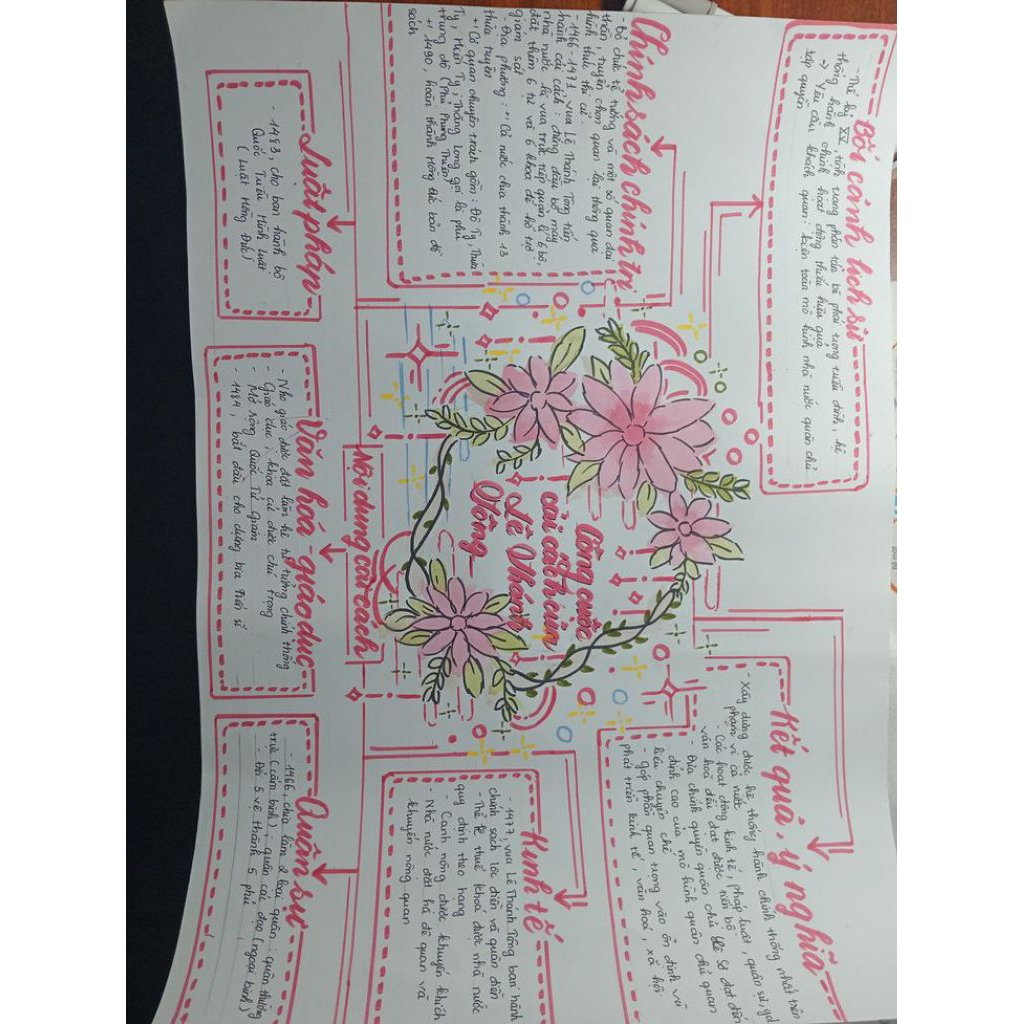 Công cuộc
cải cách của
Lê Thánh
Tông
Bối cảnh lịch sử
- Thế kỷ XV, tình trạng phân tán bè phái trong triều đình, hệ
thống hành chính hoạt động thiếu hiệu quả
=> Yêu cầu khách quan: kiện toàn mô hình nhà nước quân chủ
tập quyền
Nội dung cải cách
Chính sách chính trị
- bỏ chức tể tướng và một số quan đại
thần, tuyển chọn quan lại thông qua
hình thức thi cử.
- 1466-1471, vua Lê Thánh Tông tiến
hành cải cách: đứng đầu bộ máy
nhà nước là vua, trực tiếp quản lí 6 bộ,
đặt thêm 6 tự và 6 khoa để hỗ trợ
giám sát
- Địa phương: + Cả nước chia thành 13
thừa tuyên
+ Cơ quan chuyên trách gồm: Đô Ty, Thừa
Ty, Hiến Ty; Thăng Long gọi là phủ
trung đô (Phủ Phụng Thiên)
+ 1490, hoàn thành Hồng Đức bản đồ
sách
Luật pháp
- 1483, cho ban hành bộ
Quốc Triều Hình Luật
(Luật Hồng Đức)
Văn hoá - giáo dục
- Nho giáo được đặt làm hệ tư tưởng chính thống
- Giáo dục, khoa cử được chú trọng
- Mở rộng Quốc Tử Giám
- 1484, bắt đầu cho dựng bia Tiến sĩ
Quân sự
- 1466, chia làm 2 loại quân: quân thường
trực (cấm binh), quân các đạo (ngoại binh)
- Đổi 5 vệ thành 5 phủ
Kinh tế
- 1477, vua Lê Thánh Tông ban hành
chính sách lộc điền và quân điền
- Thể lệ thuế khoá được nhà nước
quy định theo hạng
- Canh nông được khuyến khích
- Nhà nước đặt hà đê quan và
khuyến nông quan
Kết quả, ý nghĩa
- Xây dựng được hệ thống hành chính thống nhất trên
phạm vi cả nước
- Các hoạt động kinh tế, pháp luật, quân sự, gd
văn hoá đều đạt được tiến bộ
- Đưa chính quyền quân chủ Lê Sơ đạt đến
đỉnh cao của mô hình quân chủ quan
liêu chuyên chế
- góp phần quan trọng vào ổn định và
phát triển kinh tế, văn hoá, xã hội